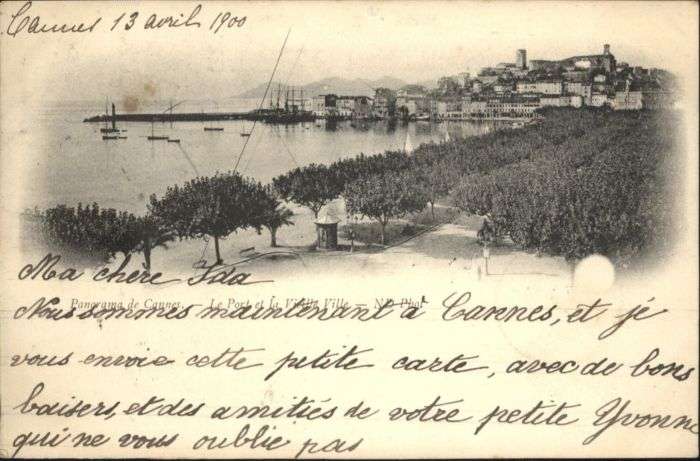 Cannes 13 avril 1900
Ma chère Ida
Panorama de Cannes. — Le Port et la Vieille Ville — ND Phot
Nous sommes maintenant à Cannes, et je
vous envoie cette petite carte, avec de bons
baisers, et des amitiés de votre petite Yvonne
qui ne vous oublie pas